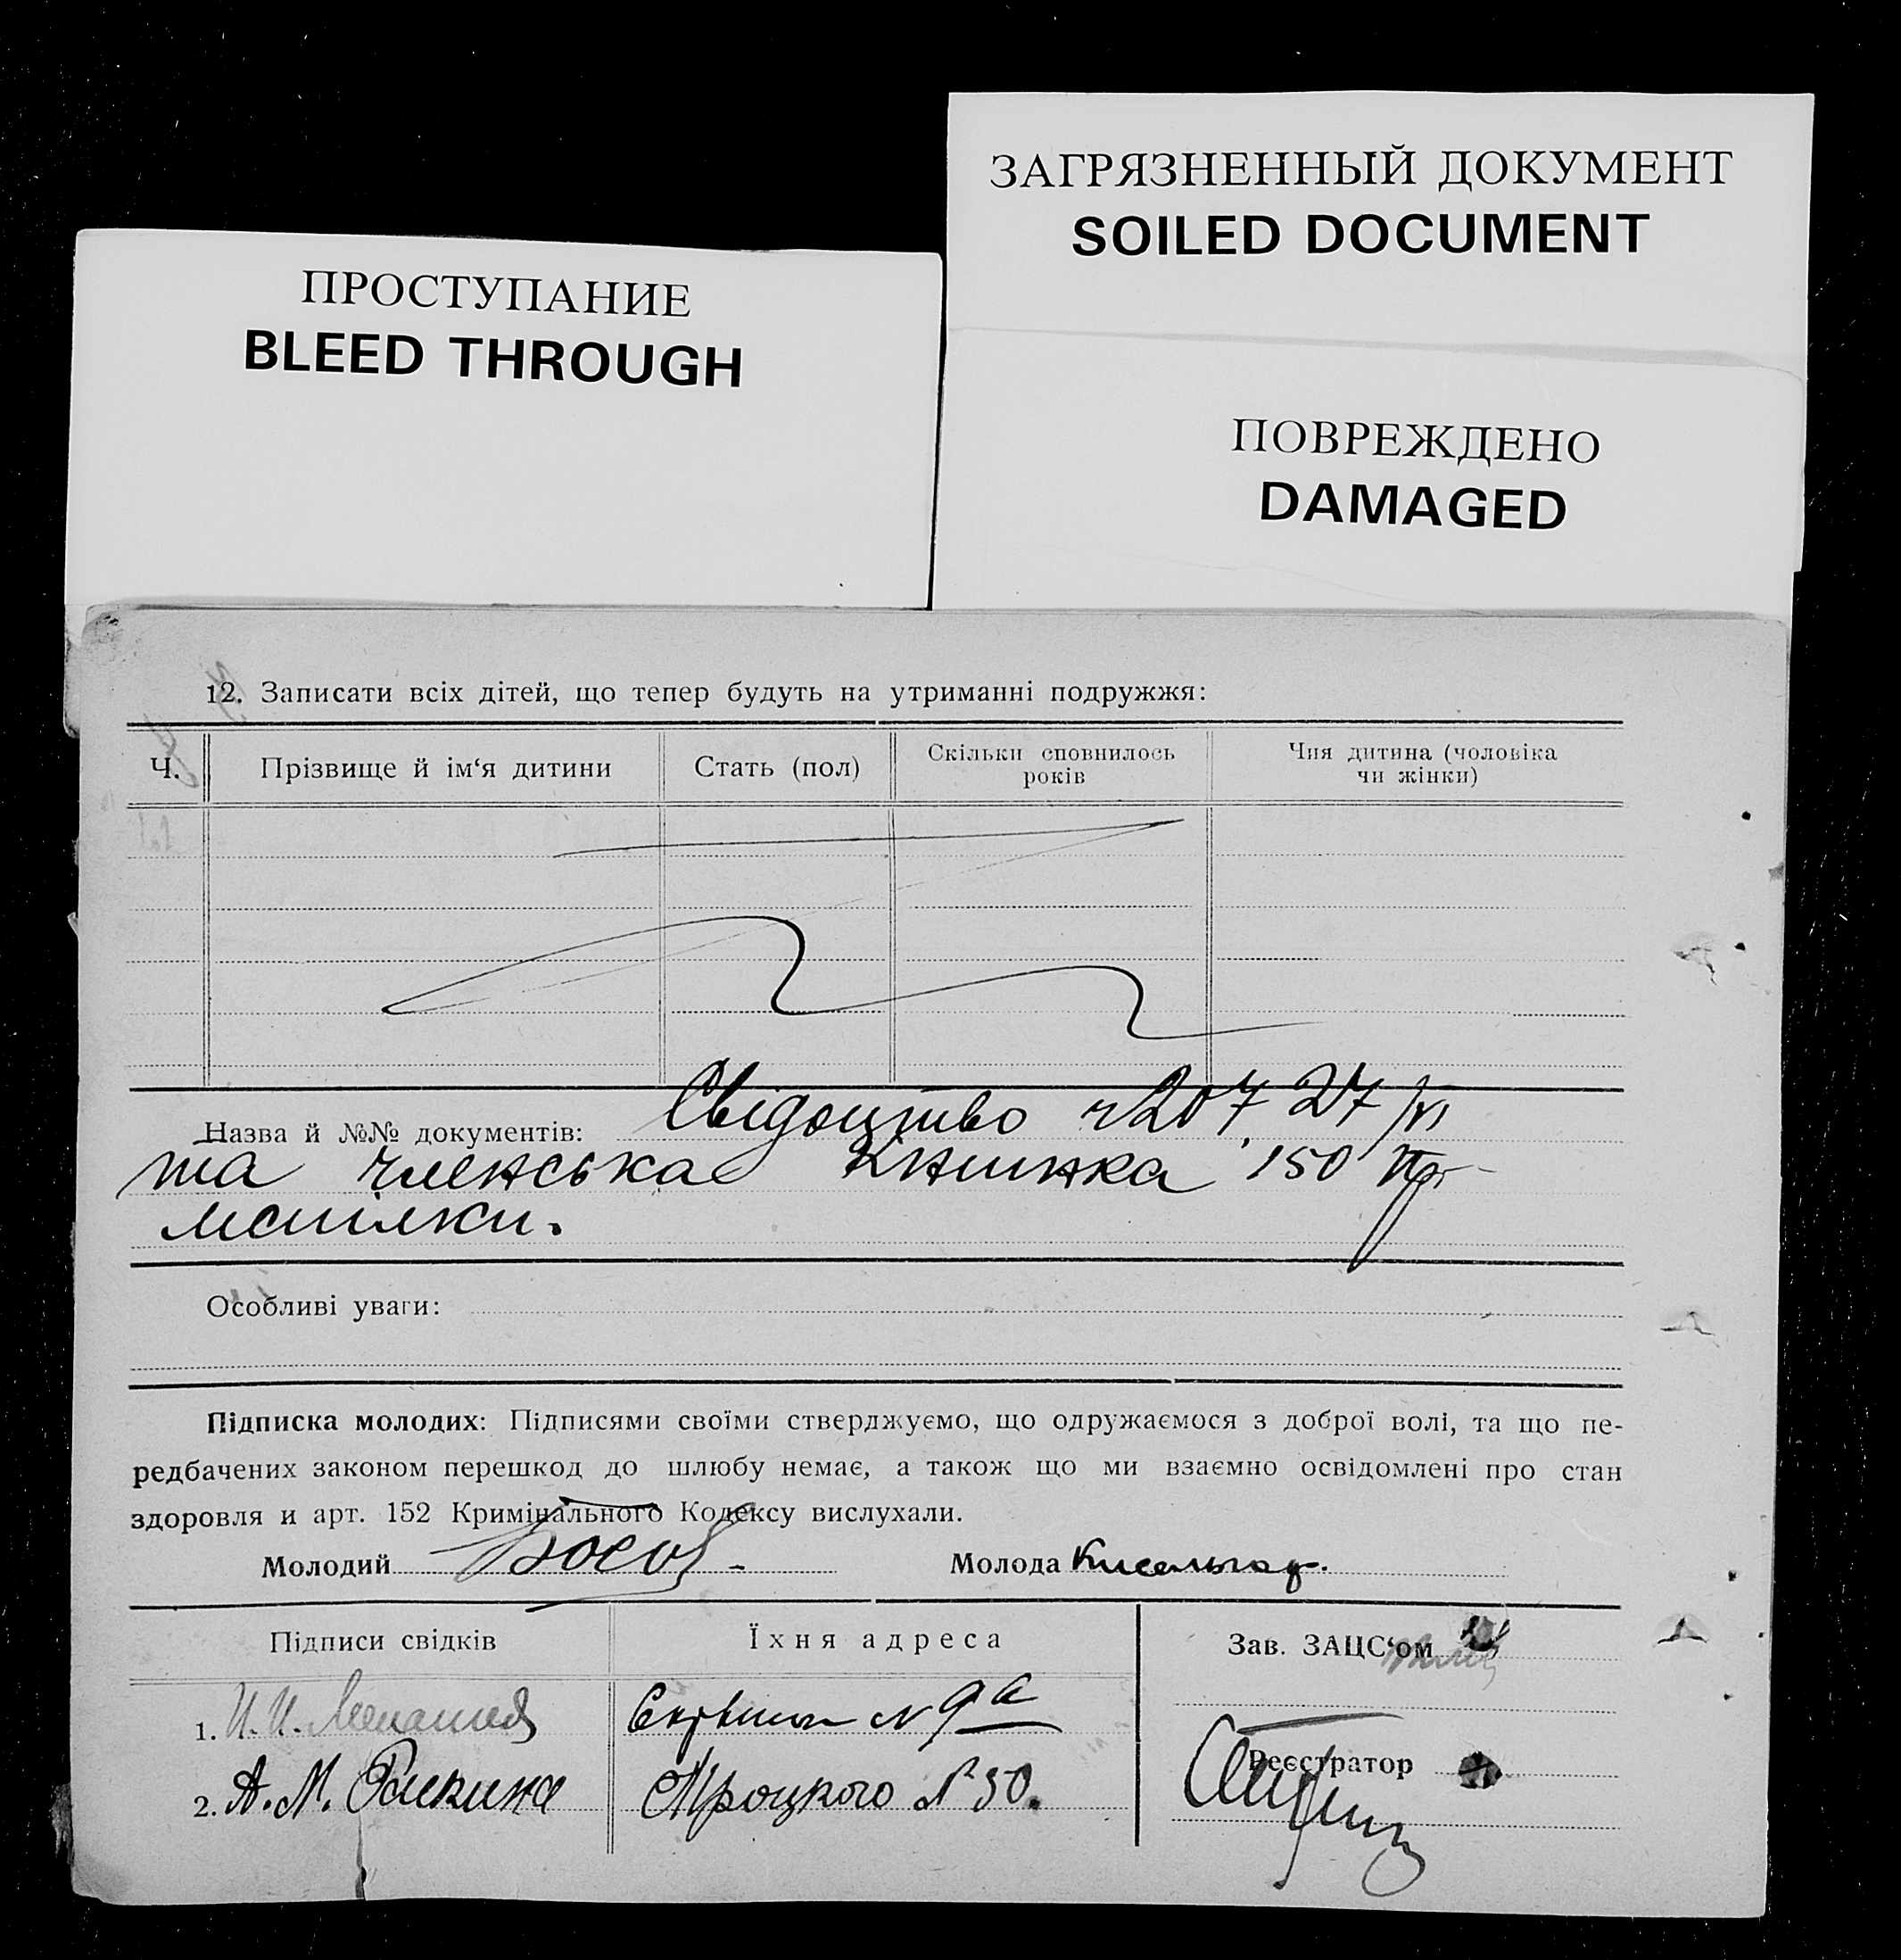 ЗАГРЯЗНЕННЫЙ ДОКУМЕНТ
SOILED DOCUMENT
ПРОСТУПАНИЕ
BLEED THROUGH
ПОВРЕЖДЕНО
DAMAGED
12. Записати всіх дітей, що тепер будуть на утриманні подружжя:
Ч.
Прізвище й ім‘я дитини
Стать (пол)
Скільки сповнилось
років
Чия дитина (чоловіка
чи жінки)
Назва й №№ документів: Свідоцтво ч 207 27/VI
та членська книжка 150
Особливі уваги:
Підписка молодих: Підписями своїми стверджуємо, що одружаємося з доброї волі, та що пе-
редбачених законом перешкод до шлюбу немає, а також що ми взаємно освідомлені про стан
здоровля и арт. 152 Кримінального Кодексу вислухали.
Молодий
Молода
Підписи свідків
Їхня адреса
Зав. ЗАЦС‘ом
1. И. И. N 9а
2. А. М. Троцкого N 50.
Реєстратор